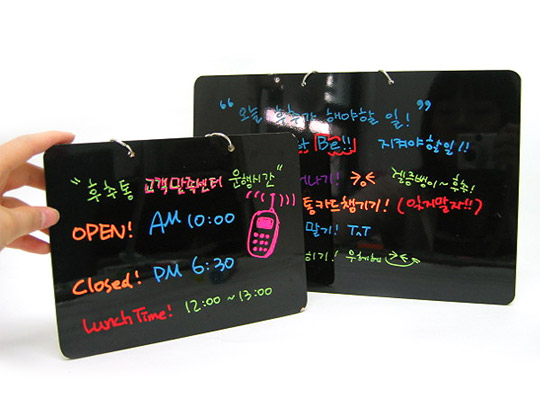 "후추통 고객만족센터 운행시간"
OPEN! AM 10:00
Closed! PM 6:30
Lunch Time! 12:00 ~ 13:00
"오늘 해야할 일!"
Be!! 지켜야할일!!
나기! ~ 후추!
통카드챙기기! (잊지말자!!)
말기! TnT
하기! 우헤헤